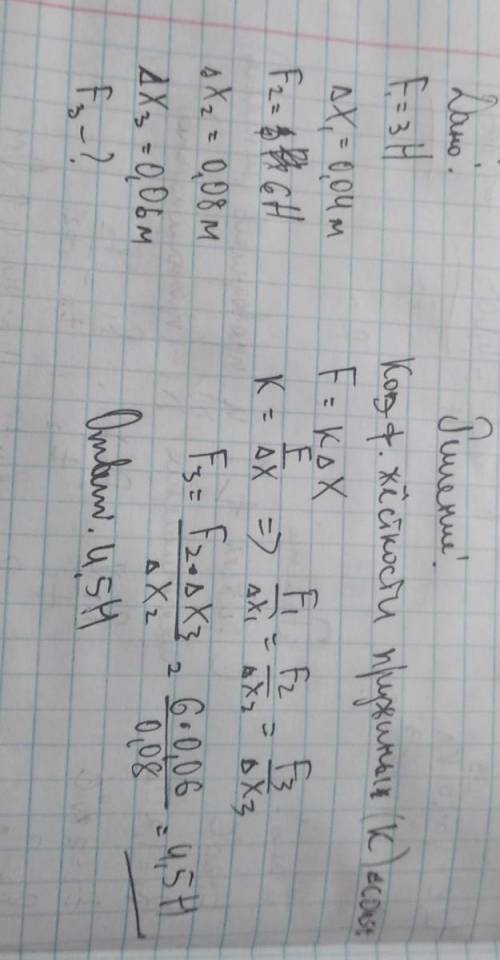 Дано:
F₁ = 3 Н
ΔX₁ = 0,04 м
F₂ = 6 Н
ΔX₂ = 0,08 м
ΔX₃ = 0,06 м
F₃ – ?
Решение:
Коэф. жёсткости пружины (К)
F = K ΔX
K = F/ΔX => F₁/ΔX₁ = F₂/ΔX₂ = F₃/ΔX₃
F₃ = F₂•ΔX₃/ΔX₂ = 6•0,06/0,08 = 4,5 Н
Ответ: 4,5 Н